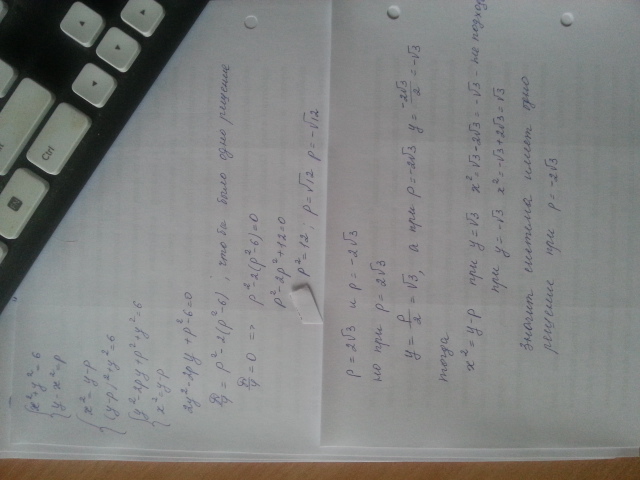 {x⁴+y²=6
{y-x²=p
{x²=y-p
{(y-p)²+y²=6
{y²-2py+p²+y²=6
{x²=y-p
2y²-2py+p²-6=0
D/4 = p²-2(p²-6), чтобы было одно решение
D/4=0 => p²-2(p²-6)=0
p²-2p²+12=0
p²=12; p=√12 p=-√12
p=2√3 и p=-2√3
но при p=2√3
y=p/2=√3, а при p=-2√3 y=-2√3/2=-√3
тогда
x²=y-p при y=√3 x²=√3-2√3=-√3 - не
при y=-√3 x²=-√3+2√3=√3
Значит система имеет одно
решение при p=-2√3
Ctrl